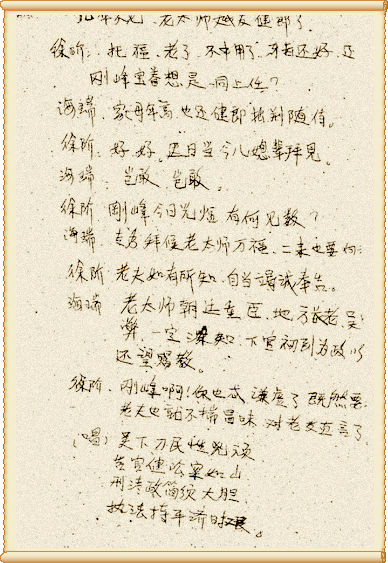 几年不见，老太师越发健郎了
徐阶：托福，老了，不中用了，牙齿还好，还
刚峰宝眷想是同上任？
海瑞：家母年高也还健郎，拙荆随侍。
徐阶：好，好，迟日当令儿媳辈拜见。
海瑞：岂敢，岂敢。
徐阶：刚峰今日光临有何见教？
海瑞：专为拜候老太师万福，二来也要向
徐阶：老夫如有所知，自当竭诚奉告。
海瑞 老太师朝廷重臣，地方长老，吴
弊，一定深知，下官初到为政以
还望赐教。
徐阶：刚峰啊！你也忒谦虚了，既然要
老夫也就不揣冒昧，对老友直言了。
（唱）吴下刁民性兇顽
告官健讼案如山
刑清政简须大胆
执法持平济时艰。